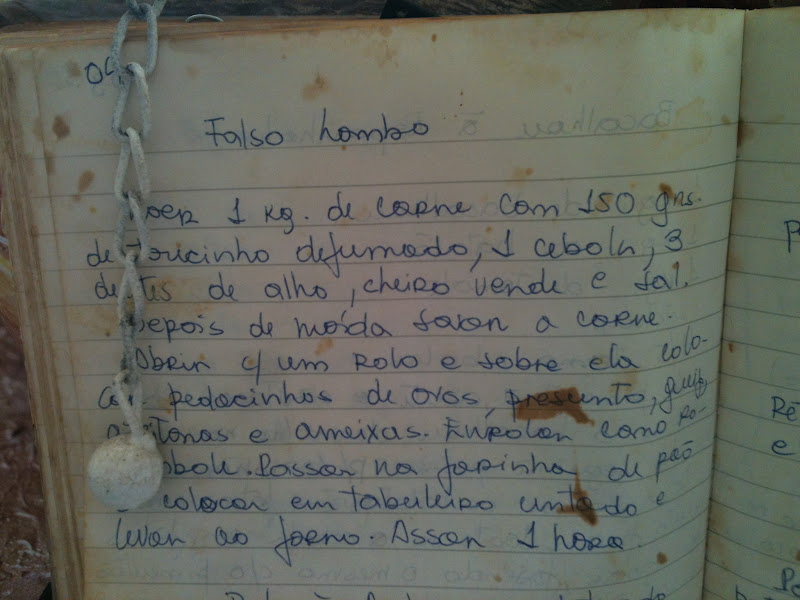 04
Falso Lombo
moer 1 kg. de carne com 150 grs.
de toucinho defumado, 1 cebola, 3
dentes de alho, cheiro verde e sal.
Depois de moída sovar a carne.
Abrir c/ um rolo e sobre ela colo-
car pedacinhos de ovos, presunto, queijo,
azeitonas e ameixas. Enrolar como ro-
cambole. Passar na farinha de pão
e colocar em tabuleiro untado e
levar ao forno. Assar 1 hora.